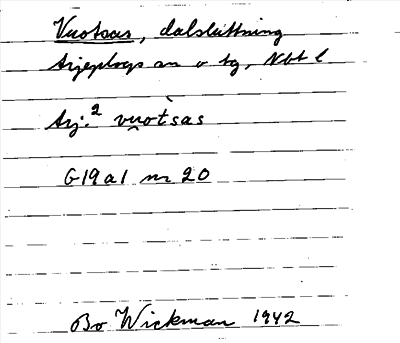 Vuotsas, dalsluttning
Arjeplogs sn o tg, Nbt l
Arj. ² vu̯òtsas
G19a1 nr 20
Bo Wickman 1942